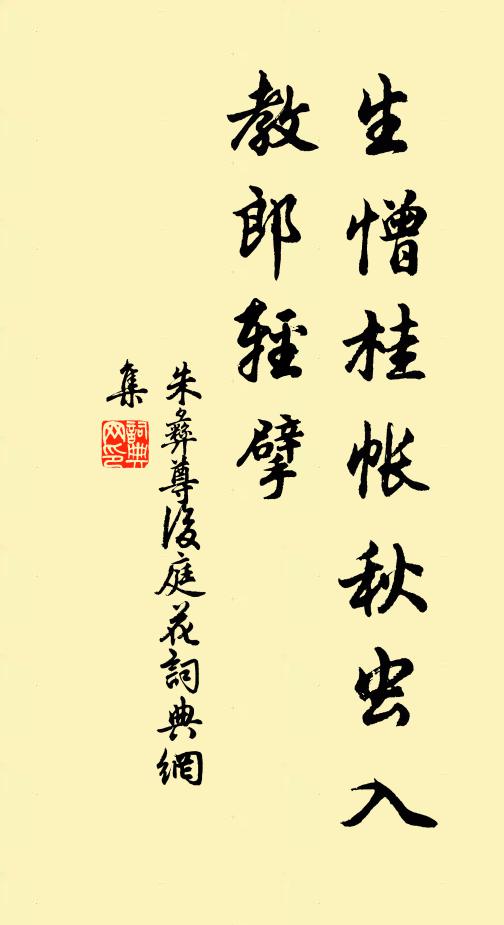 生憎桂帐秋虫入
教郎轻擘
朱彝尊後庭花詞典網
集
詞典网印